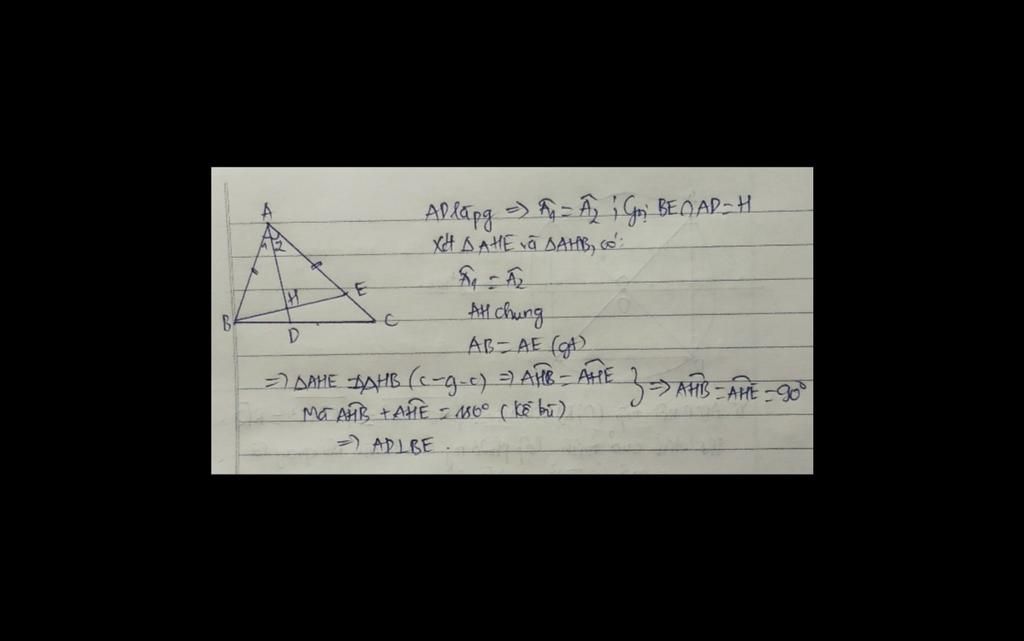 A
1 2
H
E
B
D
C
AD là pg => Â1 = Â2 ; Gọi BE∩AD=H
Xét ΔAHE và ΔAHB, có:
Â1 = Â2
AH chung
AB = AE (gt)
=> ΔAHE = ΔAHB (c-g-c) => AĤB = AĤE
Mà AĤB + AĤE = 180° (kề bù)
} => AĤB = AĤE = 90°
=> AD⊥BE.